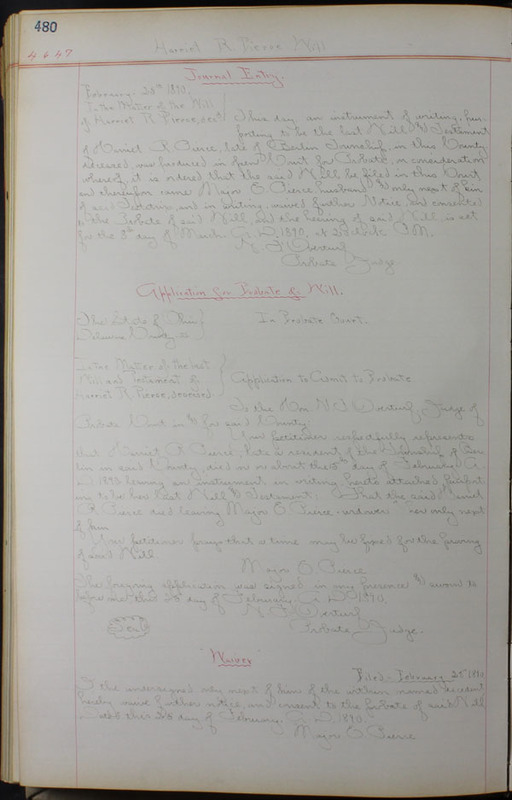 480
4447
Harriet R. Pierce Will
Journal Entry.
February 25th 1890,
In the Matter of the Will
of Harriet R. Pierce, decd.
This day an instrument of writing, pur-
porting to be the last Will & Testament
of Harriet R. Pierce, late of Berlin Township, in this County
deceased, was produced in open Court for Probate, in consideration
whereof, it is ordered that the said Will be filed in this Court
and thereupon came Major O. Pierce husband & only next of kin
of said Testatrix, and in writing, waived further Notice and consented
to the Probate of said Will and the hearing of said Will is set
for the 8th day of March A. D. 1890, at 2 o'clock P.M.
Probate Judge
Application for Probate of Will.
The State of Ohio
Delaware County ss
In Probate Court.
In the Matter of the last
Will and Testament of
Harriet R. Pierce, deceased
Application to Admit to Probate
To the Hon. Judge of
Probate Court in & for said County
Your petitioner respectfully represents
that Harriet R. Pierce, late a resident of the Township of Ber-
lin in said County, died on or about the 5th day of February A.
D. 1890 leaving an instrument in writing hereto attached purport-
ing to be her last Will & Testament: That the said Harriet
R. Pierce died leaving Major O. Pierce widower her only next
of kin
Your petitioner prays that a time may be fixed for the proving
of said Will.
Major O. Pierce
The foregoing application was signed in my presence & sworn to
before me this 25 day of February, A. D. 1890.
Probate Judge.
Seal
"Waiver"
Filed - February 25th 1890
I the undersigned only next of kin of the within named decedent
hereby waive further notice, and consent to the probate of said Will
this 25 day of February, A. D. 1890
Major O. Pierce